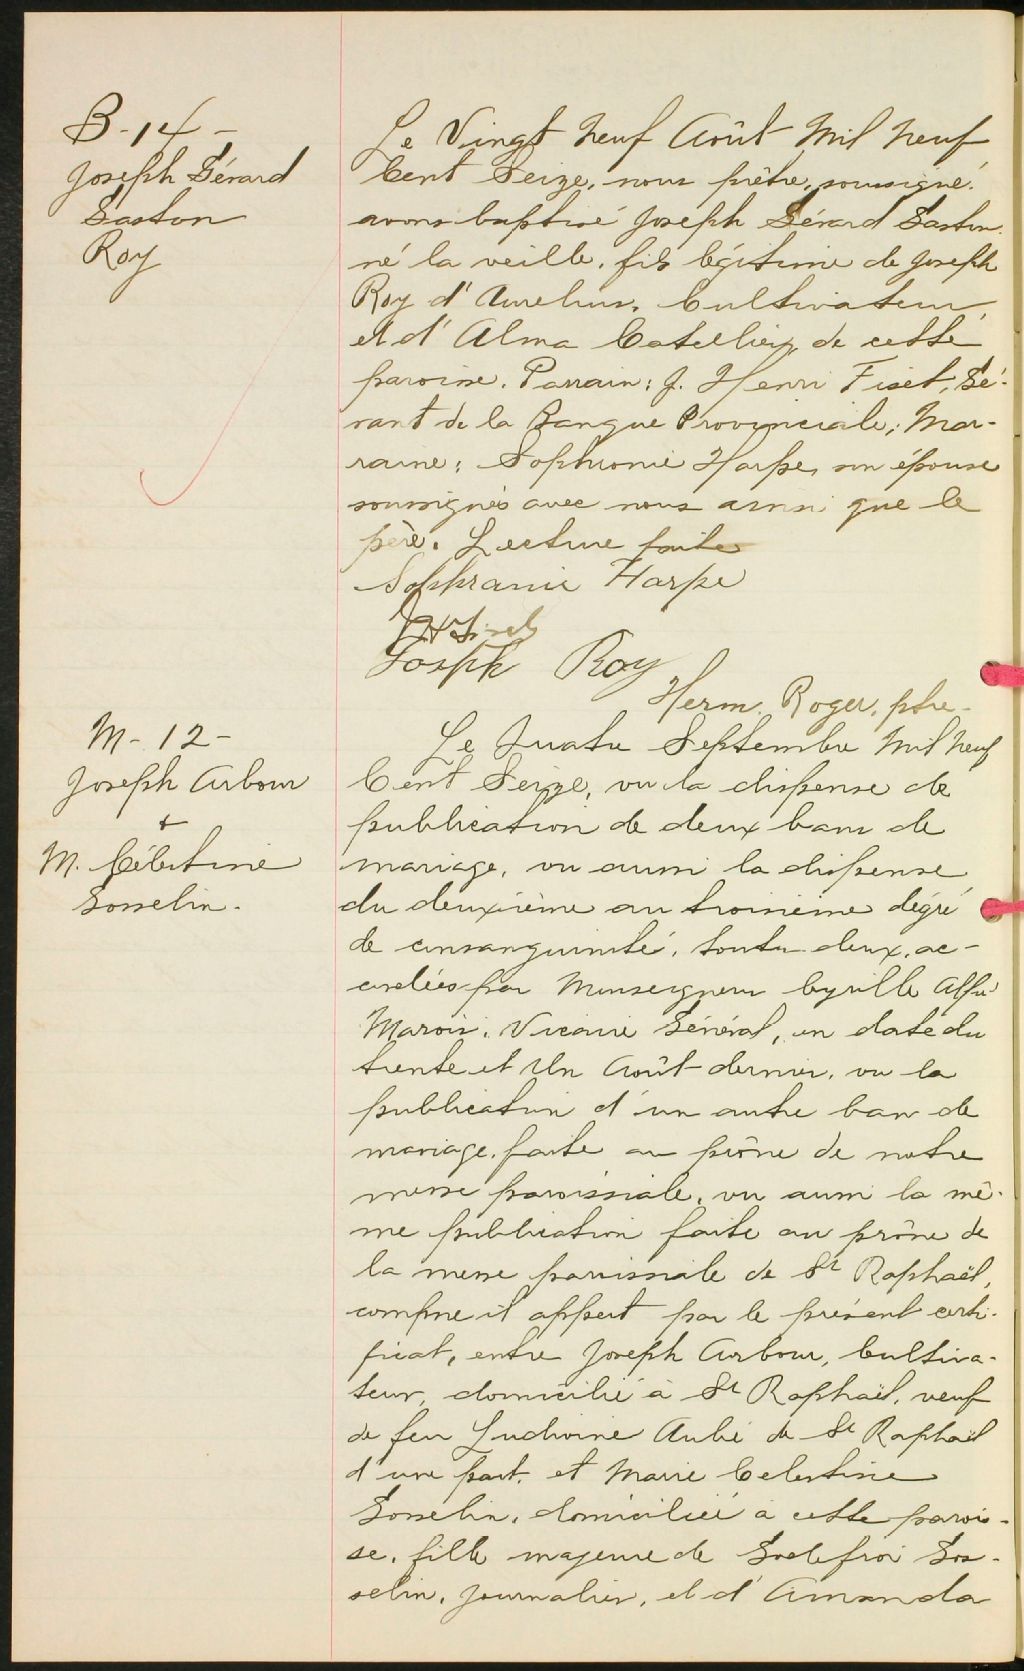 B-14-
Joseph Gérard
Gaston
Roy
Le Vingt Neuf Août Mil Neuf
Cent Seize, nous prêtre, soussigné,
avons baptisé Joseph Gérard Gaston
né la veille, fils légitime de Joseph
Roy d'Aurelius, Cultivateur,
et d'Alma Catellier, de cette
paroisse. Parrain: J. Henri Fiset, Gé-
rant de la Banque Provinciale; Mar-
raine: Sophronie Harpe, son épouse
soussignés avec nous ainsi que le
père. Lecture faite
Sophranie Harpe
JH Fiset
Joseph Roy
Herm. Roger, ptre-
M-12-
Joseph Arbour
+
M. Célestine
Gosselin.
Le Quatre Septembre Mil Neuf
Cent Seize, vu la dispense de
publication de deux bans de
mariage, vu aussi la dispense
du deuxième au troisième dégré
de consanguinité, toutes deux, ac-
cordées par Monseigneur Cyrille Alfré
Marois, Vicaire Général, en date du
trente et Un Août dernier, vu la
publication d'un autre ban de
mariage, faite au prône de notre
messe paroissiale, vu aussi la mê-
me publication faite au prône de
la messe paroissiale de St Raphaël,
comme il appert par le présent certi-
ficat, entre Joseph Arbour, Cultiva-
teur, domicilié à St Raphaël, veuf
de feu Ludivine Aubé de St Raphaël
d'une part, et Marie Celestine
Gosselin, domiciliée à cette parois-
se, fille majeure de Godefroi Gos-
selin, journalier, et d'Amanda